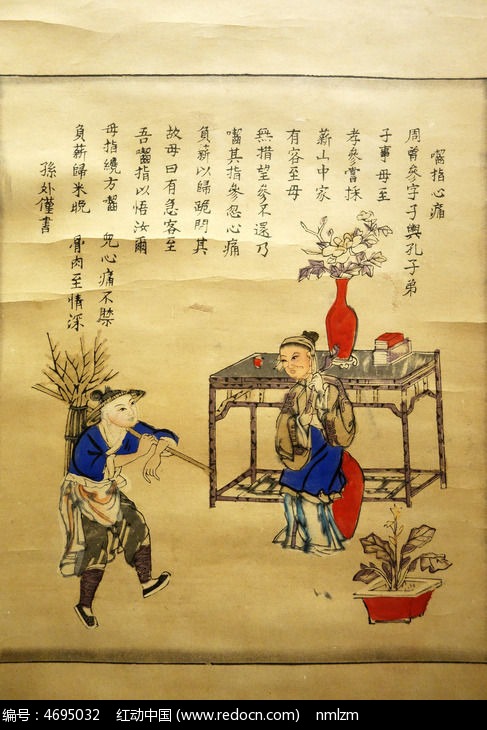 嚙指心痛
周曾參字子輿孔子弟
子事母至
孝參嘗採
薪山中家
有客至母
無措望參不還乃
嚙其指參忽心痛
負薪以歸跪問其
故母曰有急客至
吾嚙指以悟汝爾
母指纔方嚙 兒心痛不禁
負薪歸來晚 骨肉至情深
孫
書
编号：4695032 红动中国 (www.redocn.com) nmlzm